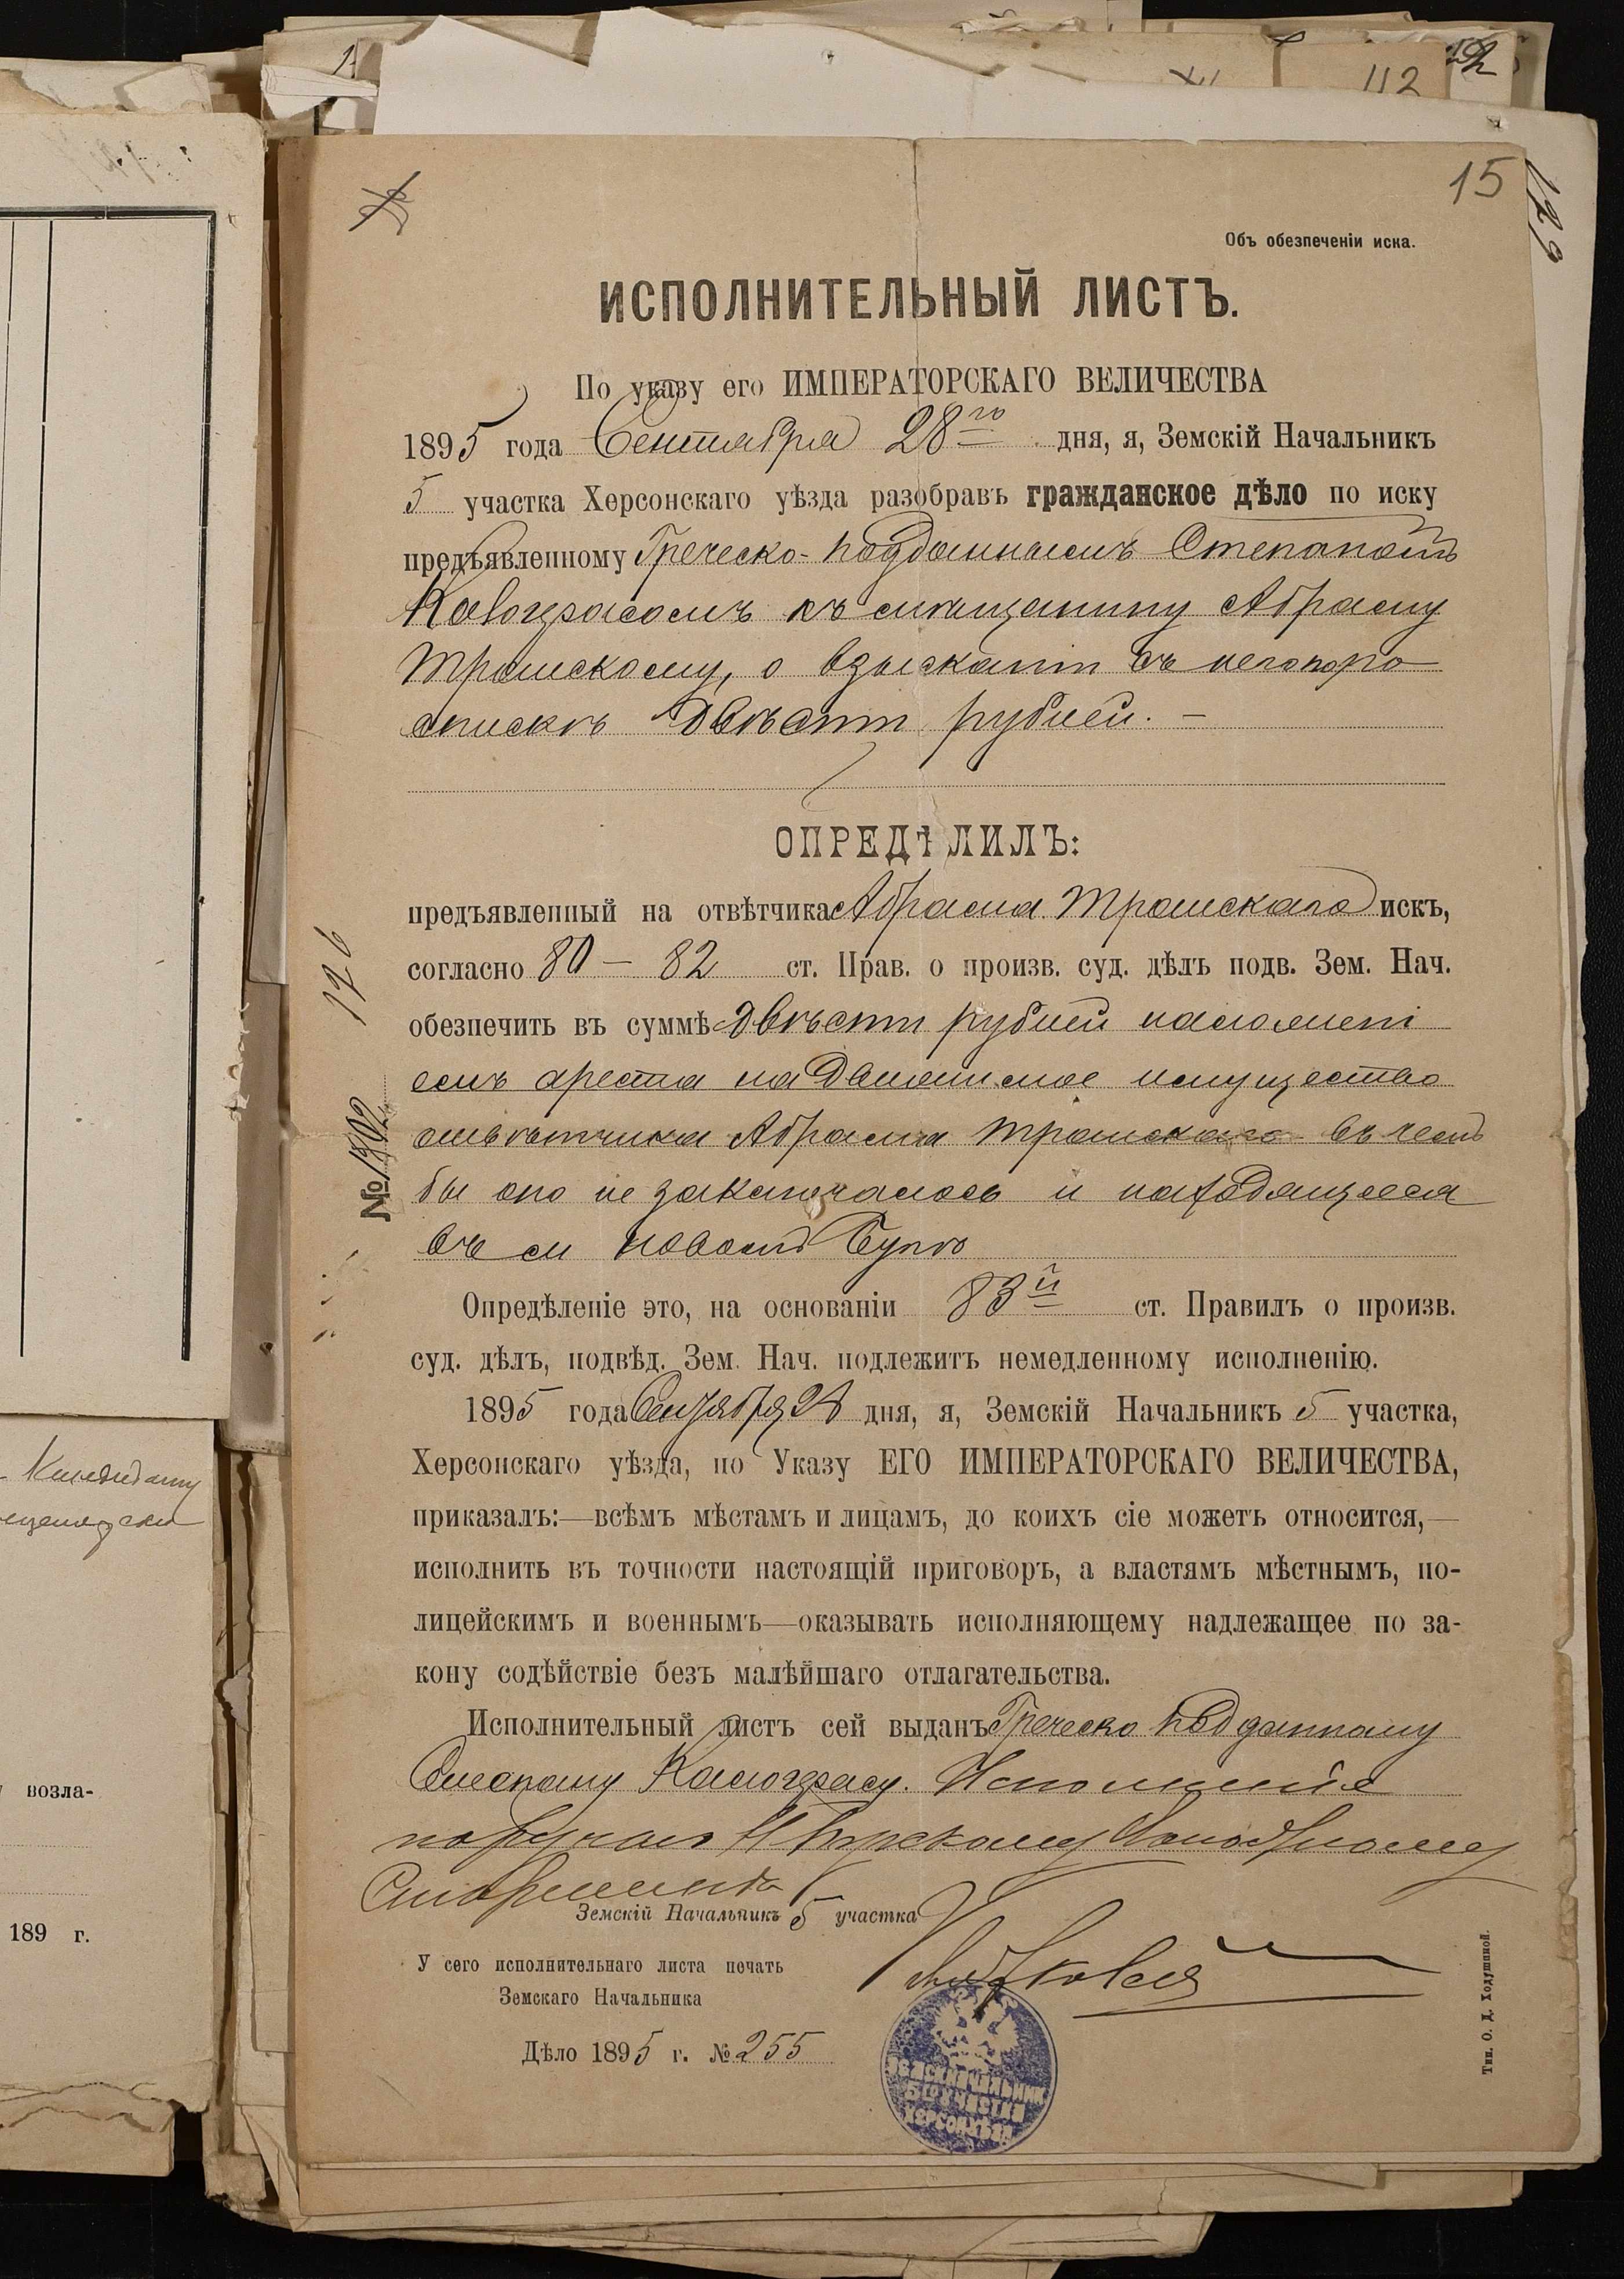 112
15
129
Объ обезпеченіи иска.
ИСПОЛНИТЕЛЬНЫЙ ЛИСТЪ.
По указу его ИМПЕРАТОРСКАГО ВЕЛИЧЕСТВА
1895 года Сентября 28го дня, я, Земскій Начальникъ
5 участка Херсонскаго уѣзда разобравъ гражданское дѣло по иску
предъявленному Греческо-подданнымъ Степаномъ
Калогерасомъ къ мѣщанину Абраму
Трамскому, о взысканіи съ него по ро
спискѣ двѣсти рублей. —
ОПРЕДѢЛИЛЪ:
предъявленный на отвѣтчика Абрама Трамскаго искъ,
согласно 80 — 82 ст. Прав. о произв. суд. дѣлъ подв. Зем. Нач.
обезпечить въ суммѣ двѣсти рублей наложені
емъ ареста на движимое имущество
отвѣтчика Абрама Трамскаго въ чемъ
бы оно не заключалось и находящееся
въ м Новомъ Бугѣ
Опредѣленіе это, на основаніи 83й ст. Правилъ о произв.
суд. дѣлъ, подвѣд. Зем. Нач. подлежитъ немедленному исполненію.
1895 года Сентября 28 дня, я, Земскій Начальникъ 5 участка,
Херсонскаго уѣзда, по Указу ЕГО ИМПЕРАТОРСКАГО ВЕЛИЧЕСТВА,
приказалъ:—всѣмъ мѣстамъ и лицамъ, до коихъ сіе можетъ относится,—
исполнить въ точности настоящій приговоръ, а властямъ мѣстнымъ, по-
лицейскимъ и военнымъ—оказывать исполняющему надлежащее по за-
кону содѣйствіе безъ малѣйшаго отлагательства.
Исполнительный листъ сей выданъ Греческо подданному
Степану Калогерасу. Исполненіе
поручаю Н Бугскому Волостному
Старшинѣ
Земскій Начальникъ 5 участка
У сего исполнительнаго листа печать
Земскаго Начальника
Дѣло 1895 г. № 255
ЗЕМСК. НАЧАЛЬНИК
5го УЧАСТКА
ХЕРСОН. УѢЗ.
Тип. О. Д. Ходушиной.
№ 1302
126
Кандидату
возла-
189 г.